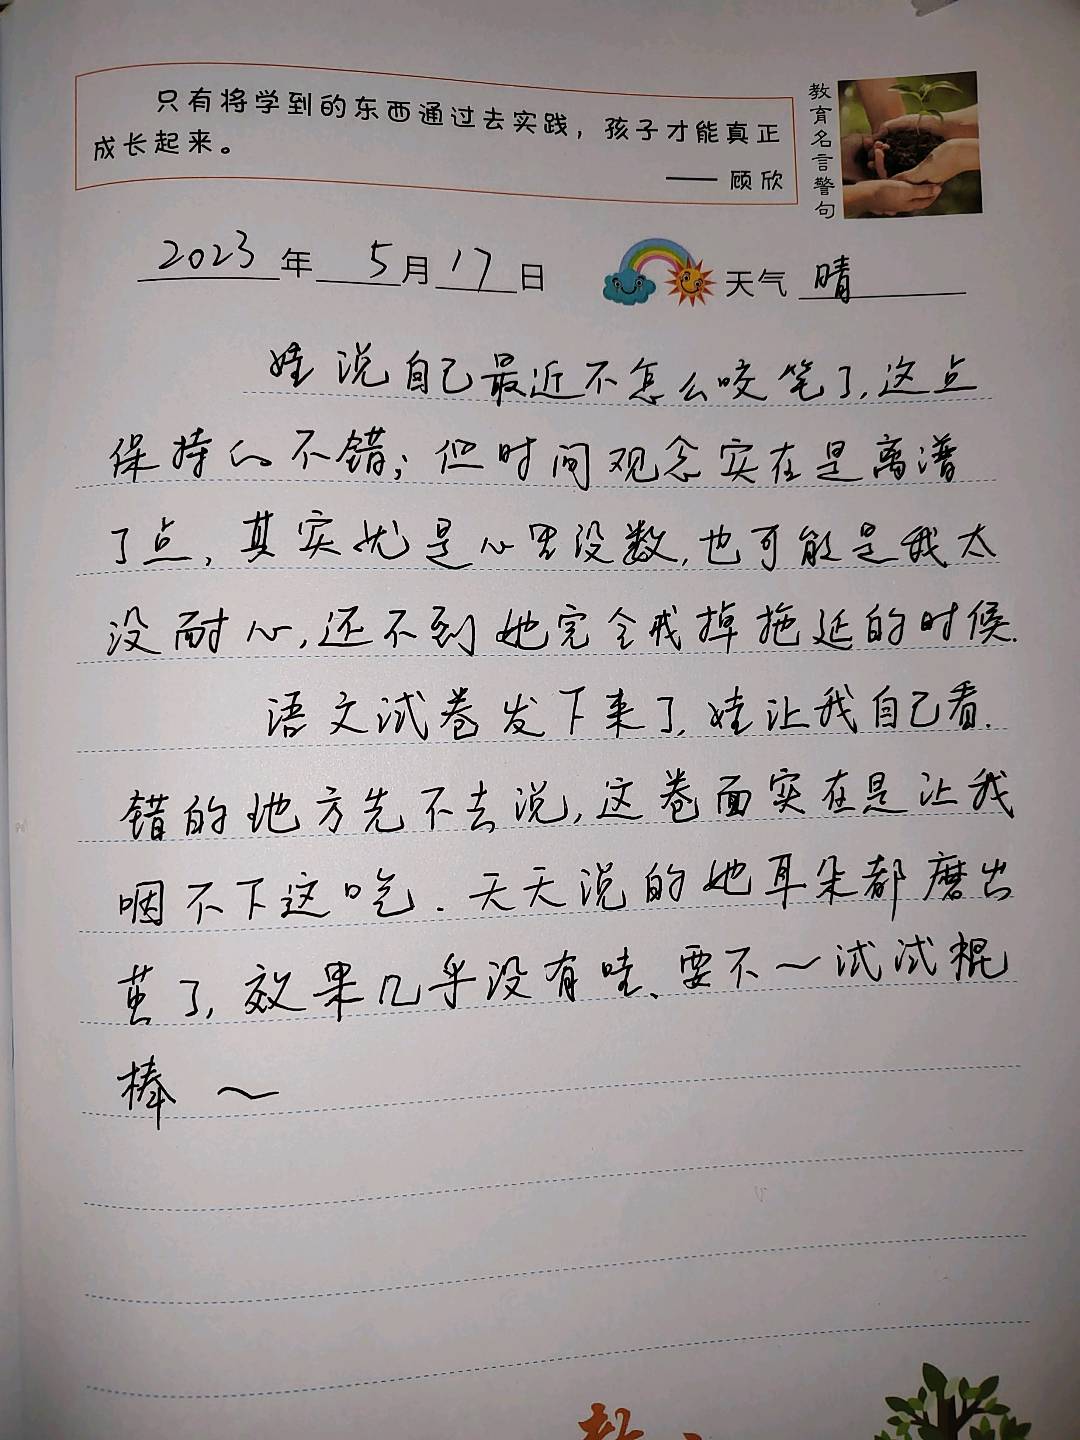 只有将学到的东西通过去实践，孩子才能真正
成长起来。
—— 顾欣
教育名言警句
2023年 5月17日 天气 晴
娃说自己最近不怎么咬笔了,这点
保持的不错；但时间观念实在是离谱
了点，其实尤是心里没数,也可能是我太
没耐心,还不到她完全戒掉拖延的时候.
语文试卷发下来了,娃让我自己看.
错的地方先不去说,这卷面实在是让我
咽不下这口吃.天天说的她耳朵都磨出
茧了,效果几乎没有哇、要不～试试棍
棒～